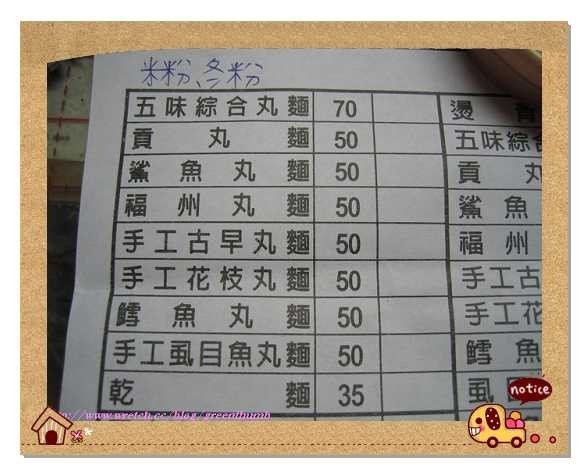 米粉、冬粉
五味綜合丸麵 70 燙青
貢丸麵 50 五味綜合
鯊魚丸麵 50 貢丸
福州丸麵 50 鯊魚
手工古早丸麵 50 福州
手工花枝丸麵 50 手工古
鱈魚丸麵 50 手工花
手工虱目魚丸麵 50 鱈魚
乾麵 35 虱
notice
//www.wretch.cc/blog/greenthumb